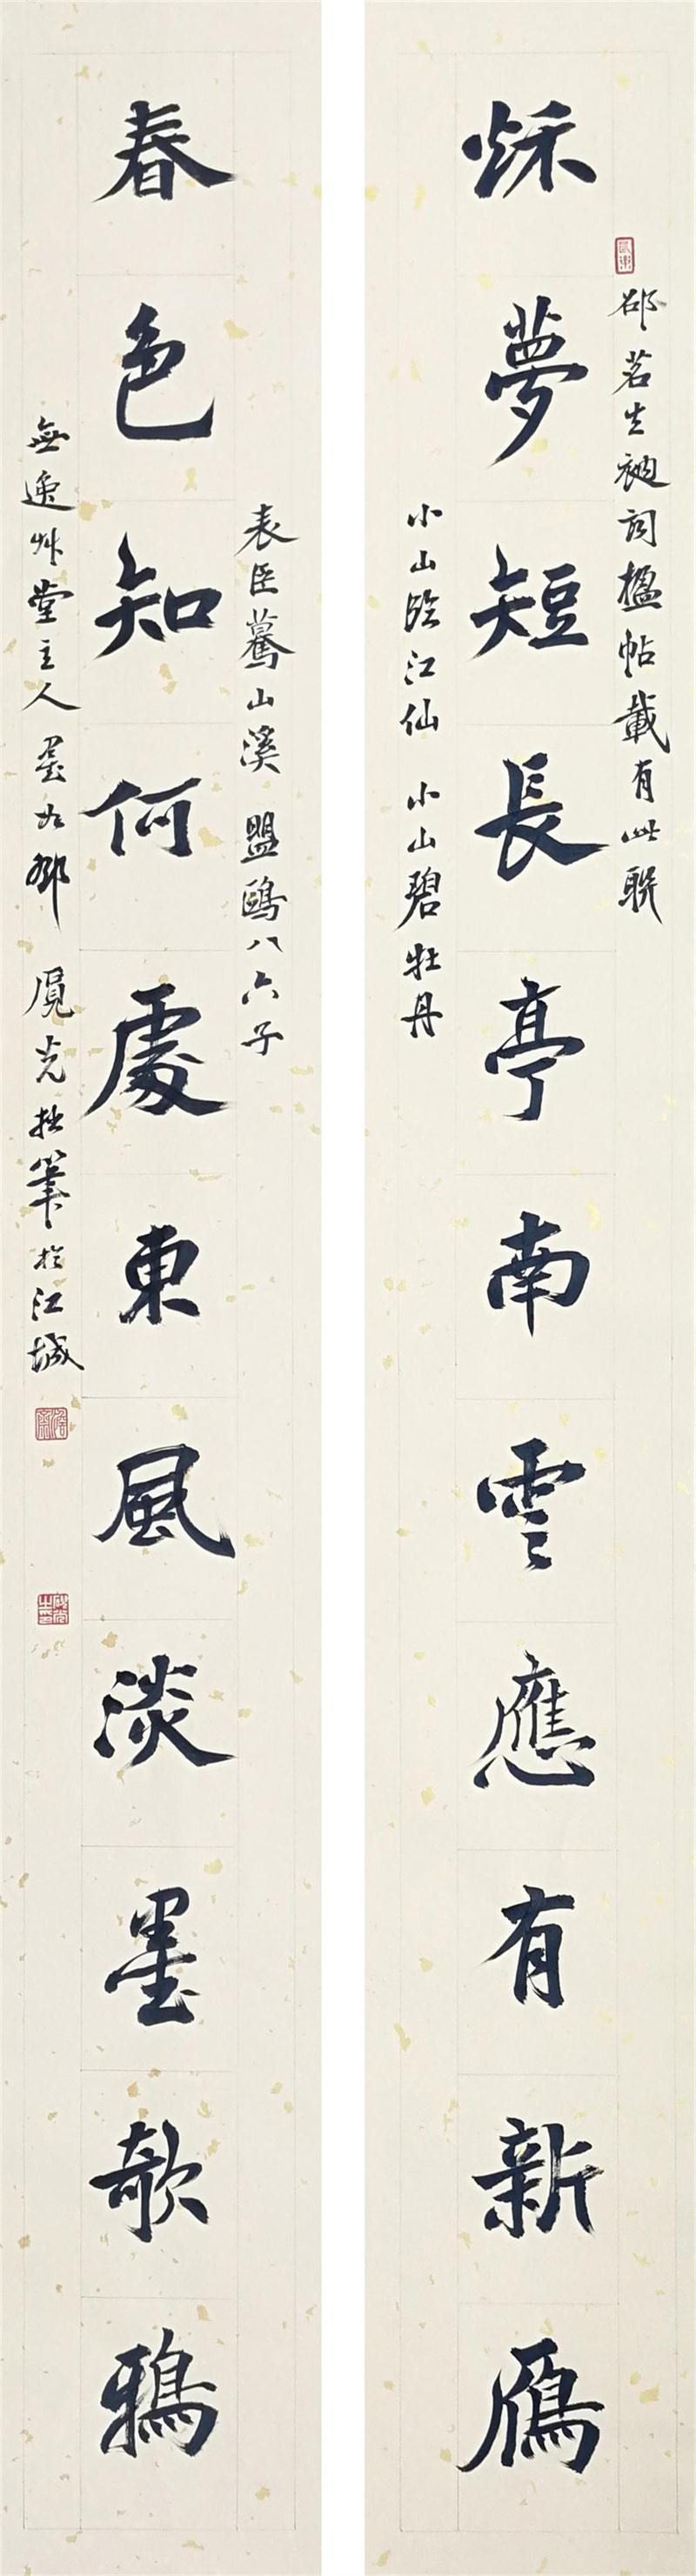 邵茗生衲詞楹帖載有此聯
秌夢短長亭南雲應有新雁
小山臨江仙 小山碧牡丹
表臣驀山溪 盟鷗八六子
春色知何處東風淡墨欹鴉
無逸艸堂主人 如鄧 拙筆於江城